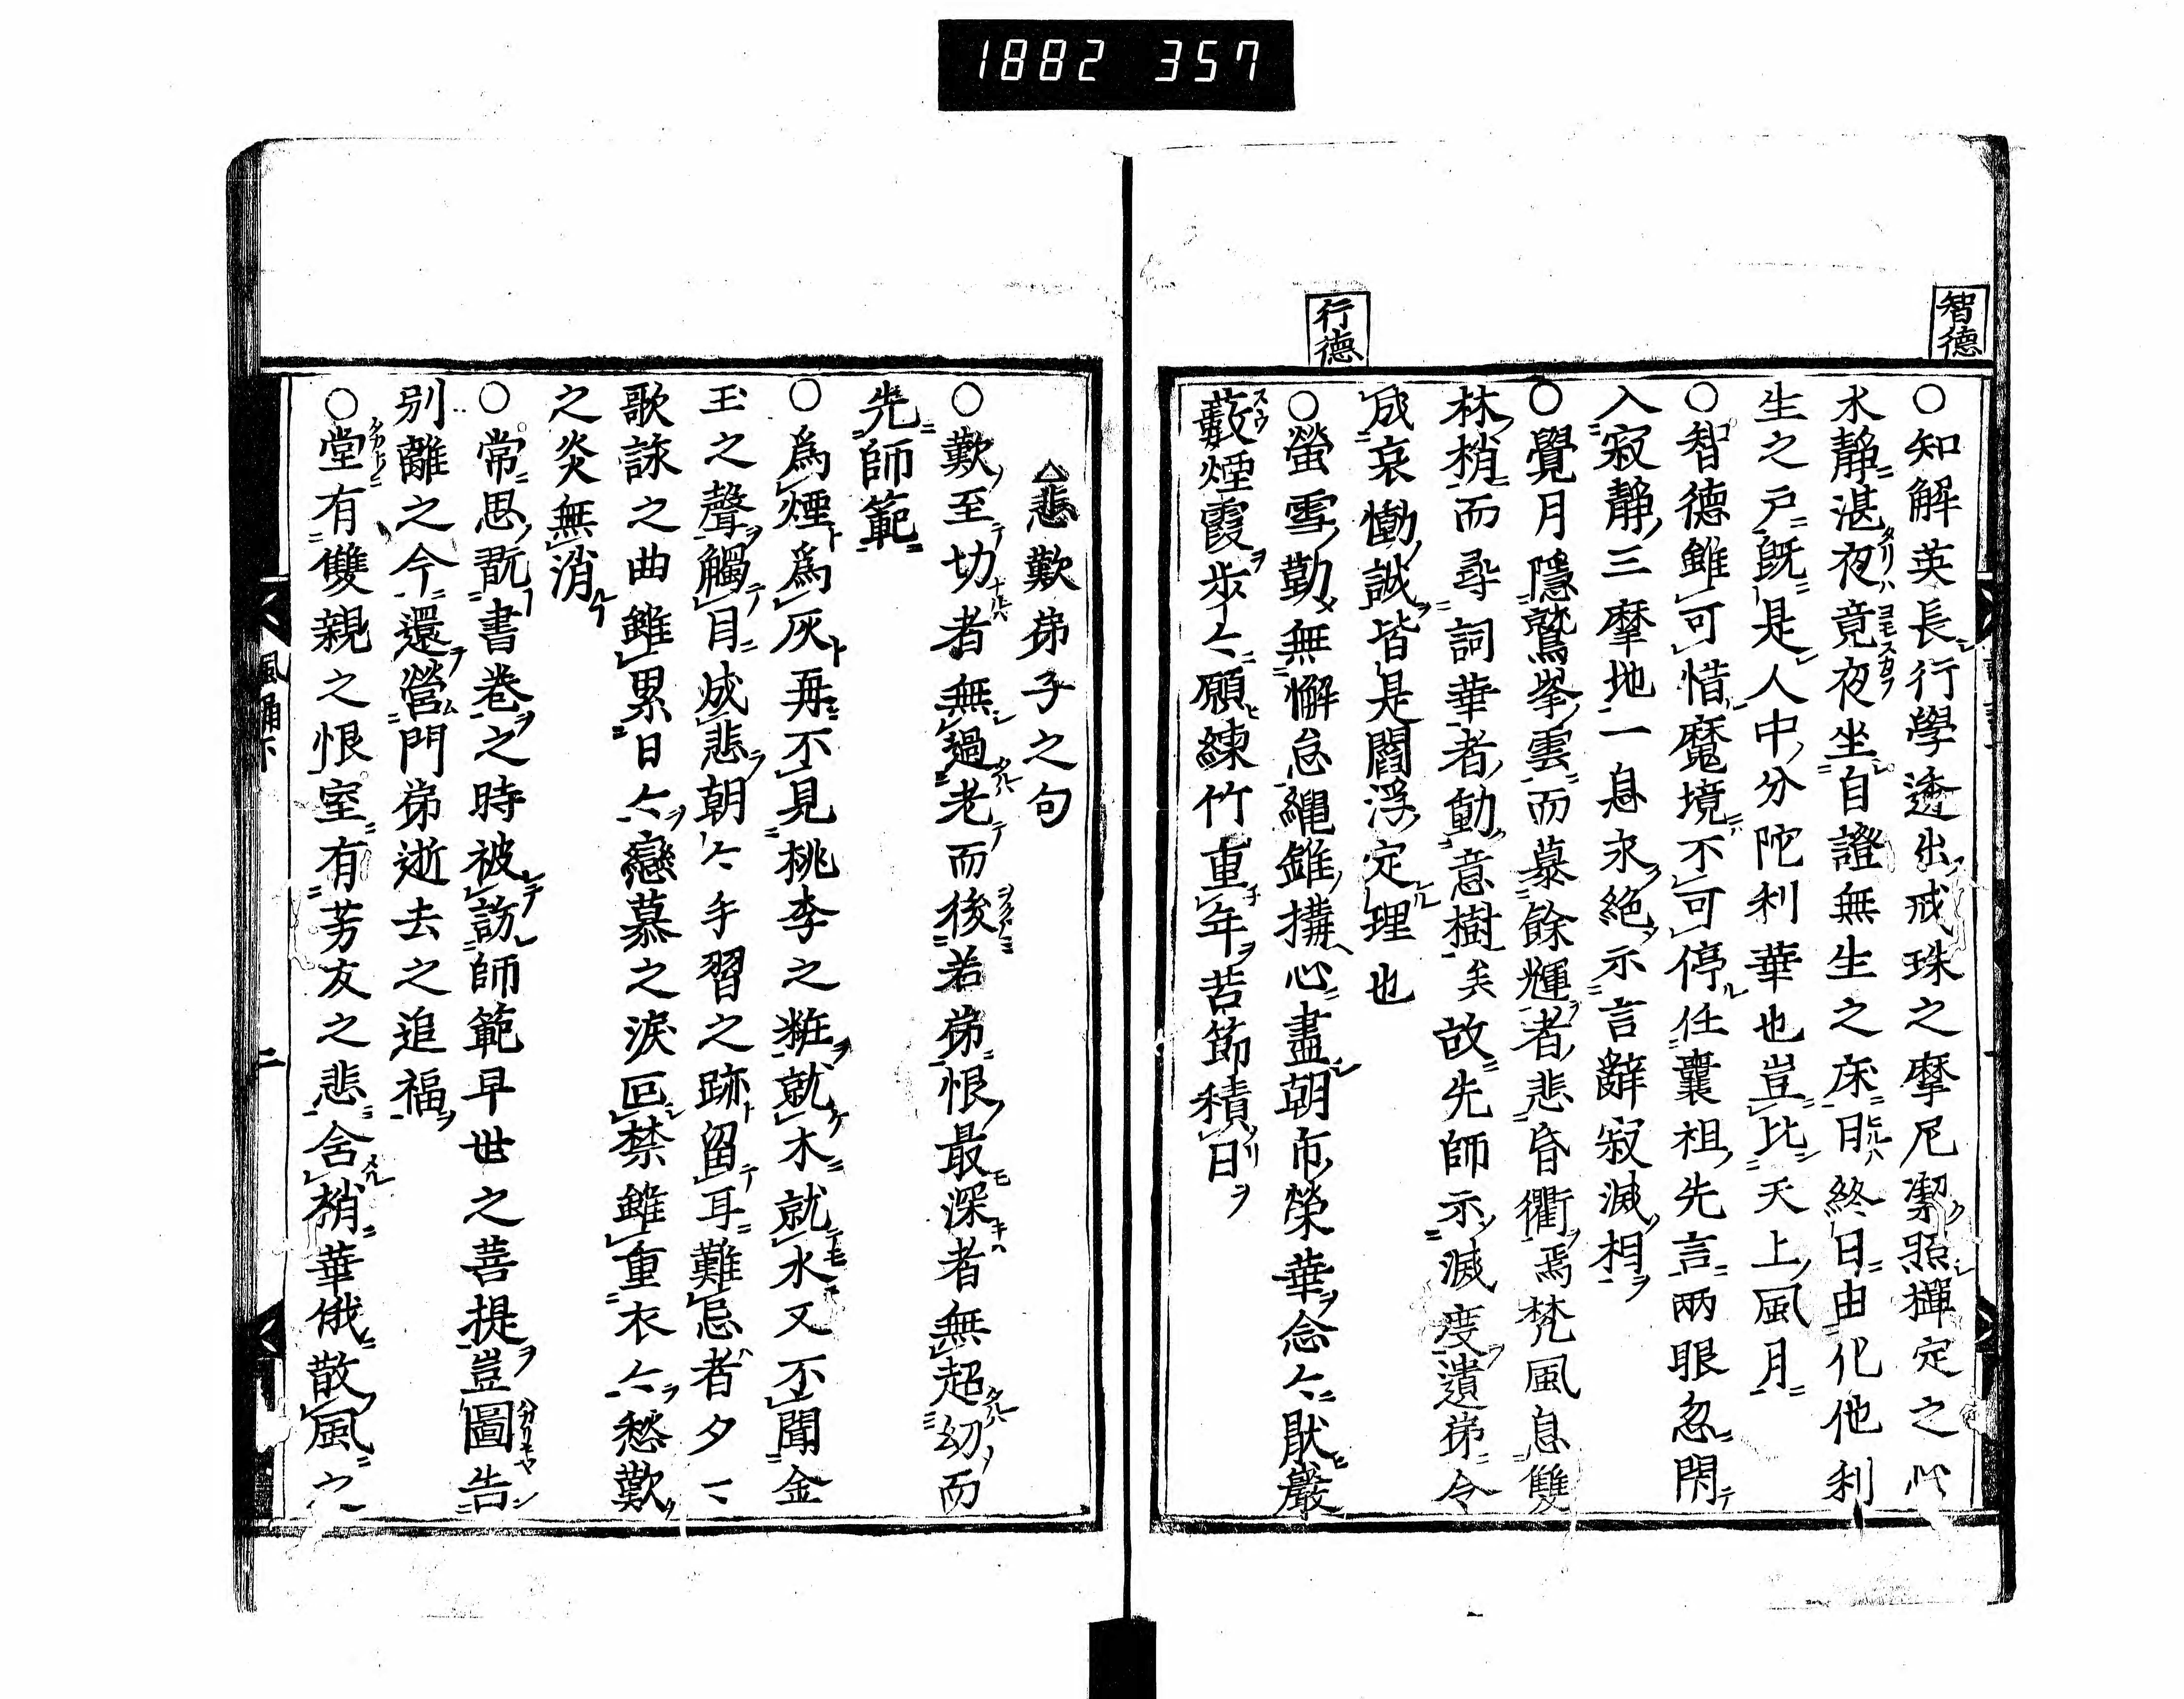 1882 357
智德
○知解英長行學透出戒珠之摩尼潔照禪定之心
水靜湛夜竟夜坐自證無生之床日終日由化他利
生之戸既是人中分陀利華也豈比天上風月
○智德雖可惜魔境不可停任曩祖先言兩眼忽閇
入寂靜三摩地一息永絕示言辭寂滅相
○覺月隱鷲峯雲而慕餘輝者悲昏衢焉梵風息雙
林梢而尋詞華者動意樹矣故先師示滅度遺弟令
成哀慟誠皆是閻浮定理也
行德
○螢雪勤無懈怠繩錐搆心盡朝市榮華念々猒嚴
藪煙霞步々願練竹重年苦節積日
△悲歎弟子之句
○歎至切者無過老而後若弟恨最深者無超幼而
先師範
○爲煙爲灰再不見桃李之粧就木就水又不聞金
玉之聲觸目成悲朝々手習之跡留耳難忘者夕々
歌詠之曲雖累日々戀慕之淚叵禁雖重衣々愁歎
之炎無消
○常思翫書卷之時被訪師範早世之菩提豈圖告
別離之今還營門弟逝去之追福
○堂有雙親之恨室有芳友之悲含梢華俄散風之
風誦下
二